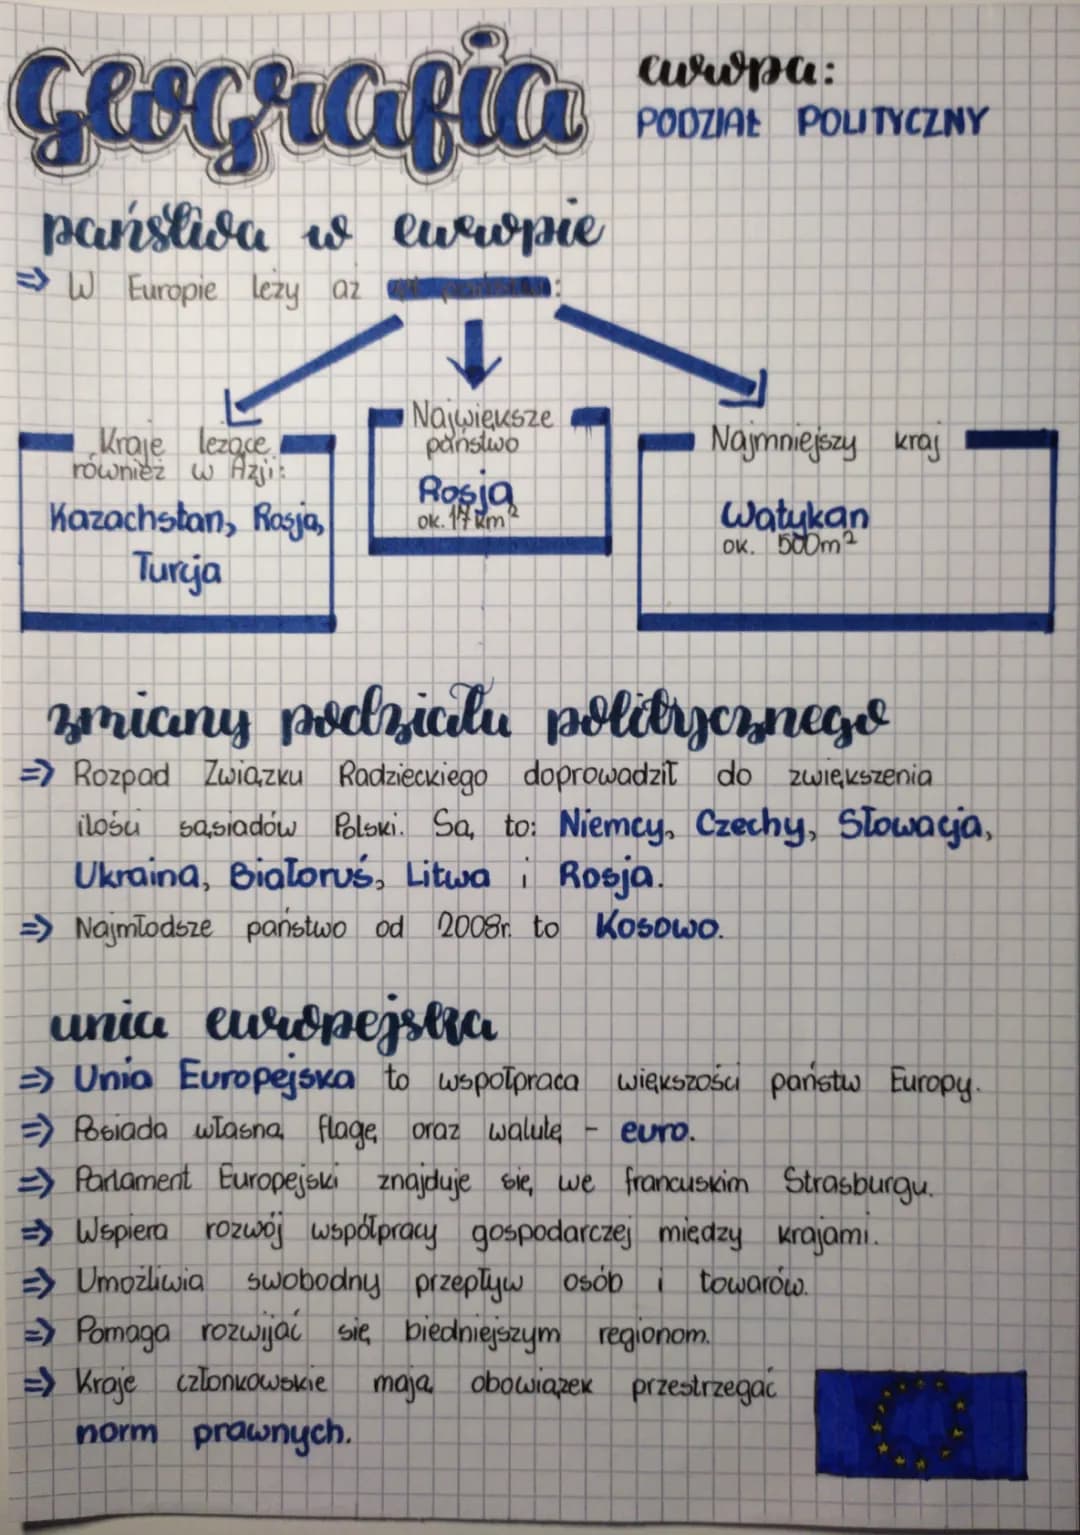 Geografia
europa:
PODZIAŁ POLITYCZNY
państwa w europie
=> W Europie leży aż :
Kraje leżące
również w Azji:
Kazachstan, Rosja,
Turcja
Największe
państwo
Rosja
ok. 17 km²
Najmniejszy kraj
Watykan
ok. 500m²
zmiany podziału politycznego
=> Rozpad Związku Radzieckiego doprowadził do zwiększenia
ilości sąsiadów Polski. Są to: Niemcy, Czechy, Słowacja,
Ukraina, Białoruś, Litwa i Rosja.
=> Najmłodsze państwo od 2008r. to Kosowo.
unia europejska
=> Unia Europejska to współpraca większości państw Europy.
=> Posiada własną flagę oraz walutę - euro.
=> Parlament Europejski znajduje się we francuskim Strasburgu.
=> Wspiera rozwój współpracy gospodarczej między krajami.
=> Umożliwia swobodny przepływ osób i towarów.
=> Pomaga rozwijać się biedniejszym regionom.
=> Kraje członkowskie mają obowiązek przestrzegać
norm prawnych.